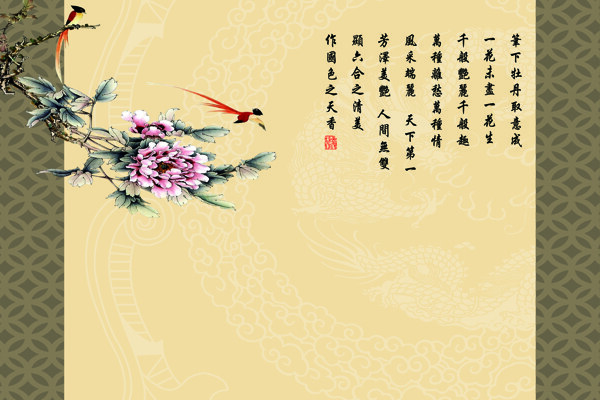 筆下牡丹取意成
一花未盡一花生
千般艷麗千般趣
萬種離愁萬種情
風采端麗 天下第一
芳澤美艷 人間無雙
顯六合之清美
作國色之天香